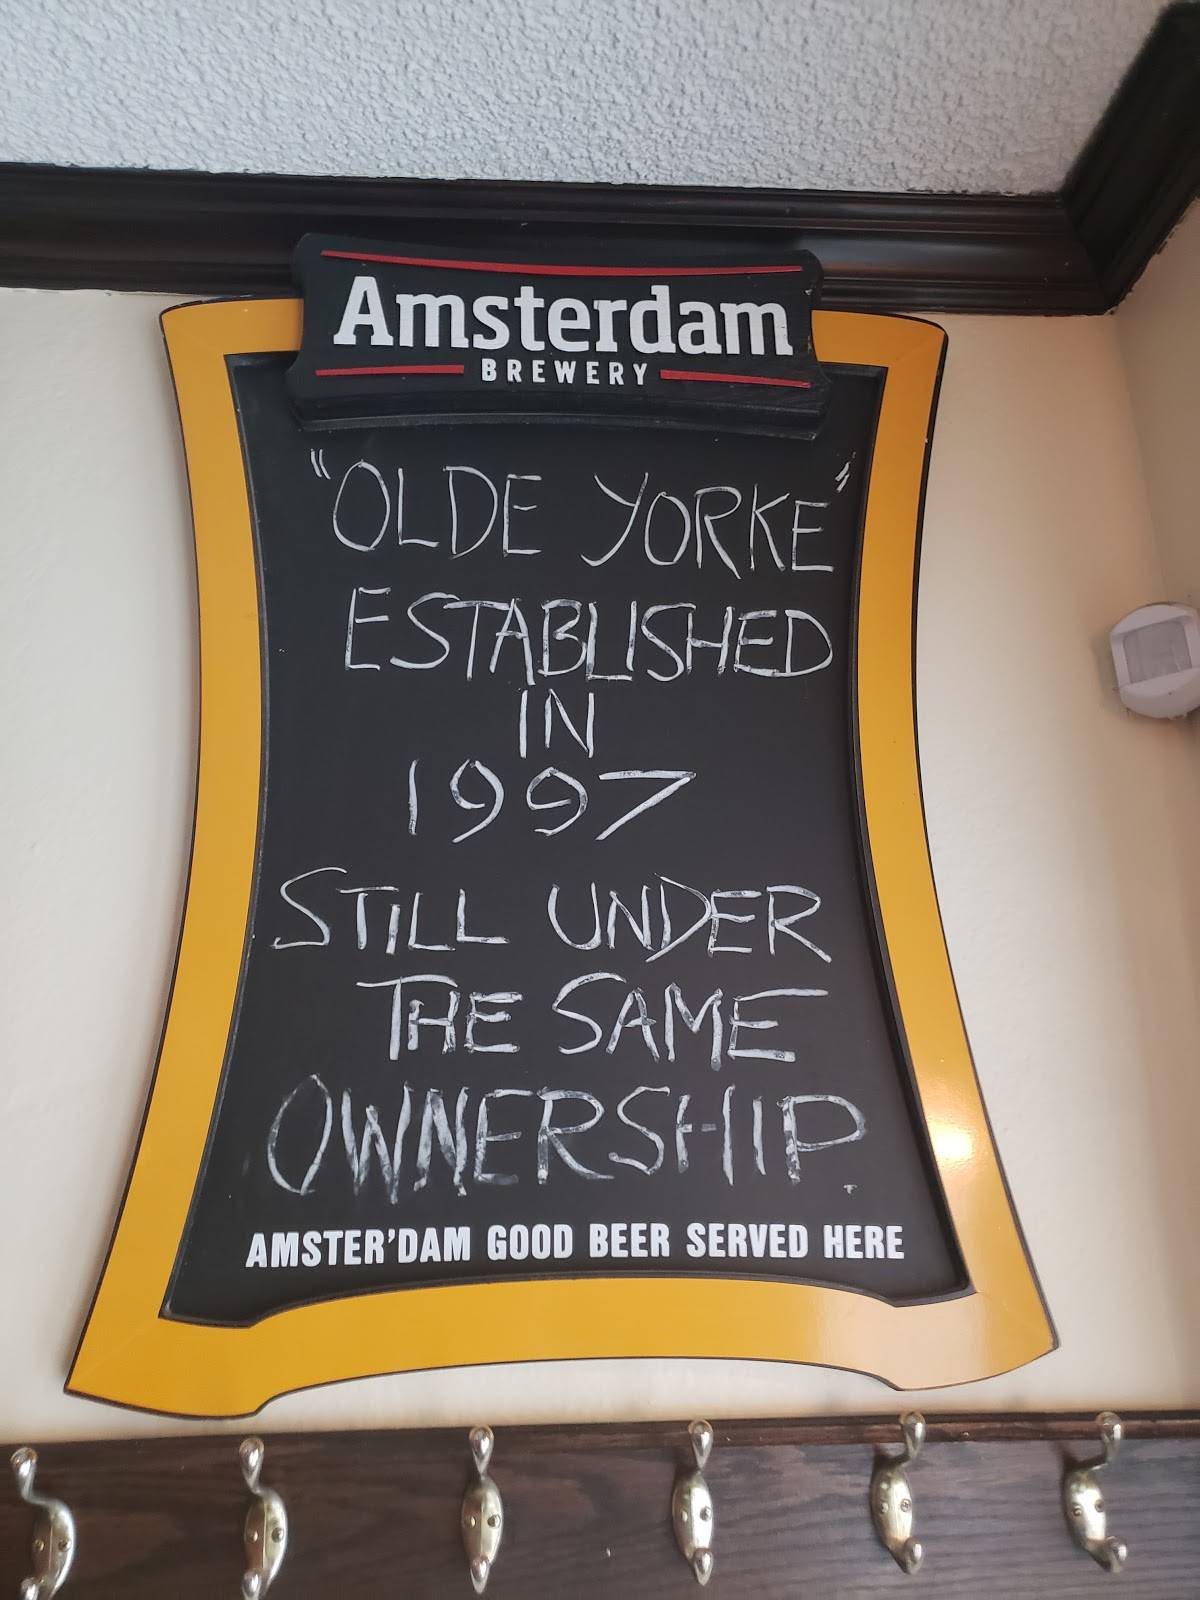 Amsterdam
BREWERY
"OLDE YORKE"
ESTABLISHED
IN
1997
STILL UNDER
THE SAME
OWNERSHIP.
AMSTER'DAM GOOD BEER SERVED HERE